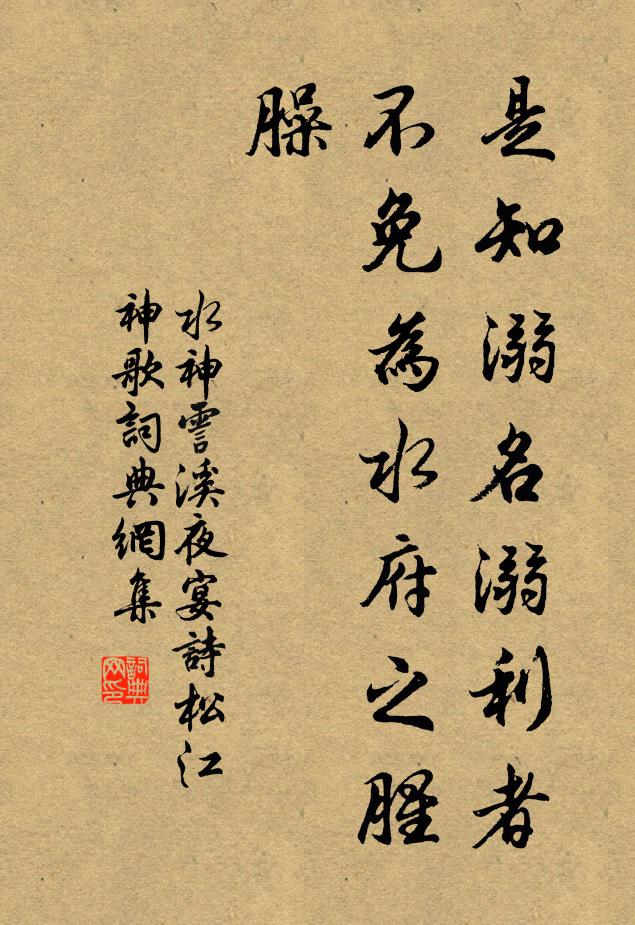 是知溺名溺利者
不免為水府之腥
臊
水神雪溪夜宴詩松江
神歌詞典網集
詞典
网印